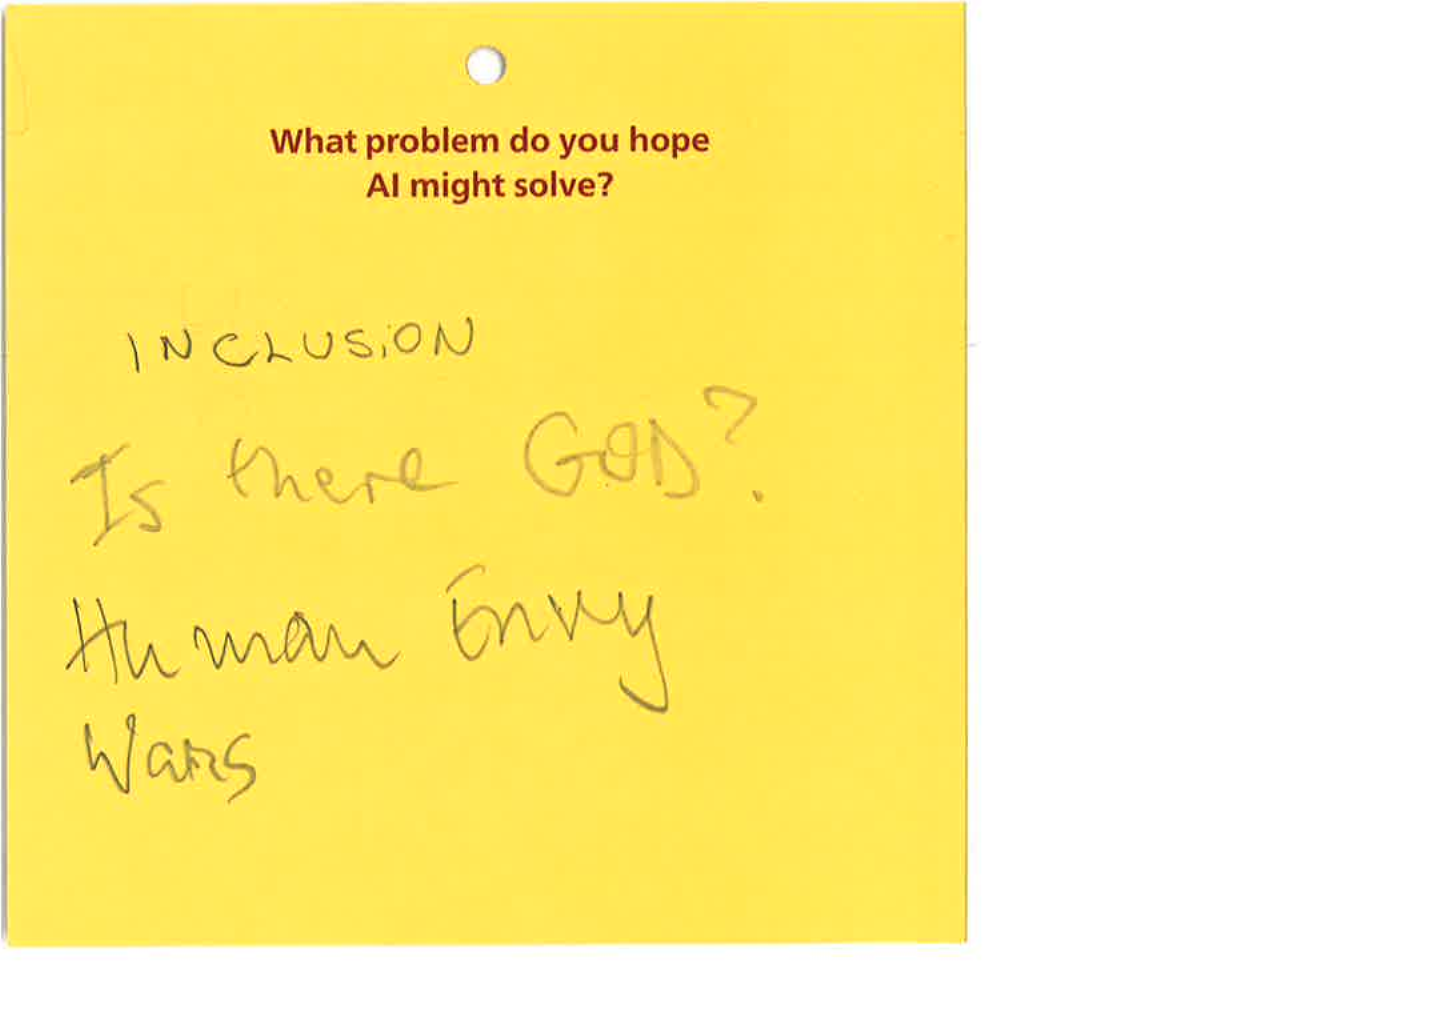 What problem do you hope
AI might solve?
INCLUSiON
Is there GOD?
Human Envy
Wars